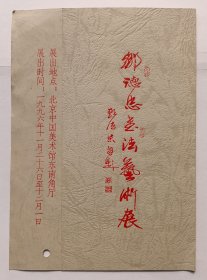 鄒德忠书法藝術展
展出地点：北京中国美术馆东南角厅
展出时间：一九九六年十一月二十六日至十二月一日